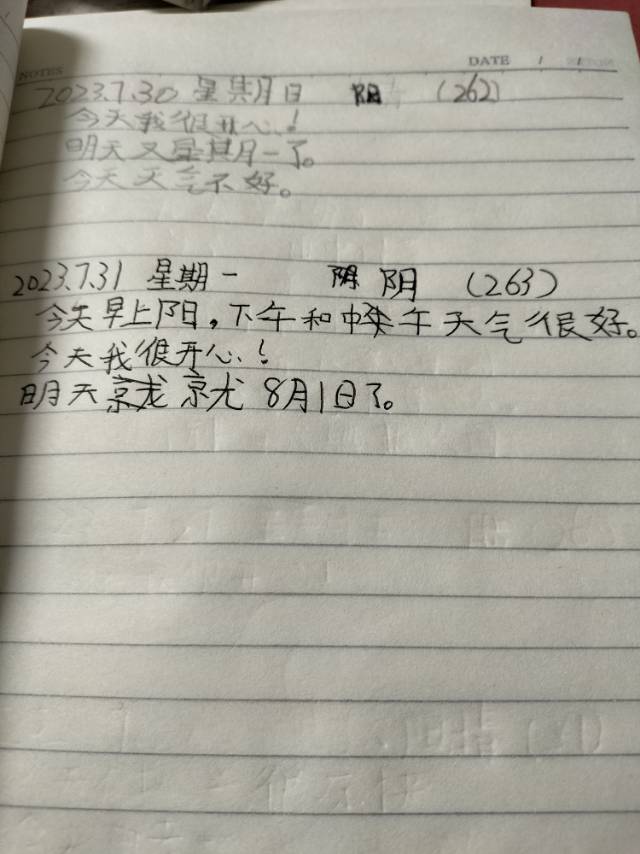 NOTES DATE / /
2023.7.30 星期日 阴 (262)
今天我很开心!
明天又是星期一了。
今天天气不好。
2023.7.31 星期一 阴 (263)
今天早上阴,下午和中午天气很好。
今天我很开心!
明天就 8月1日了。